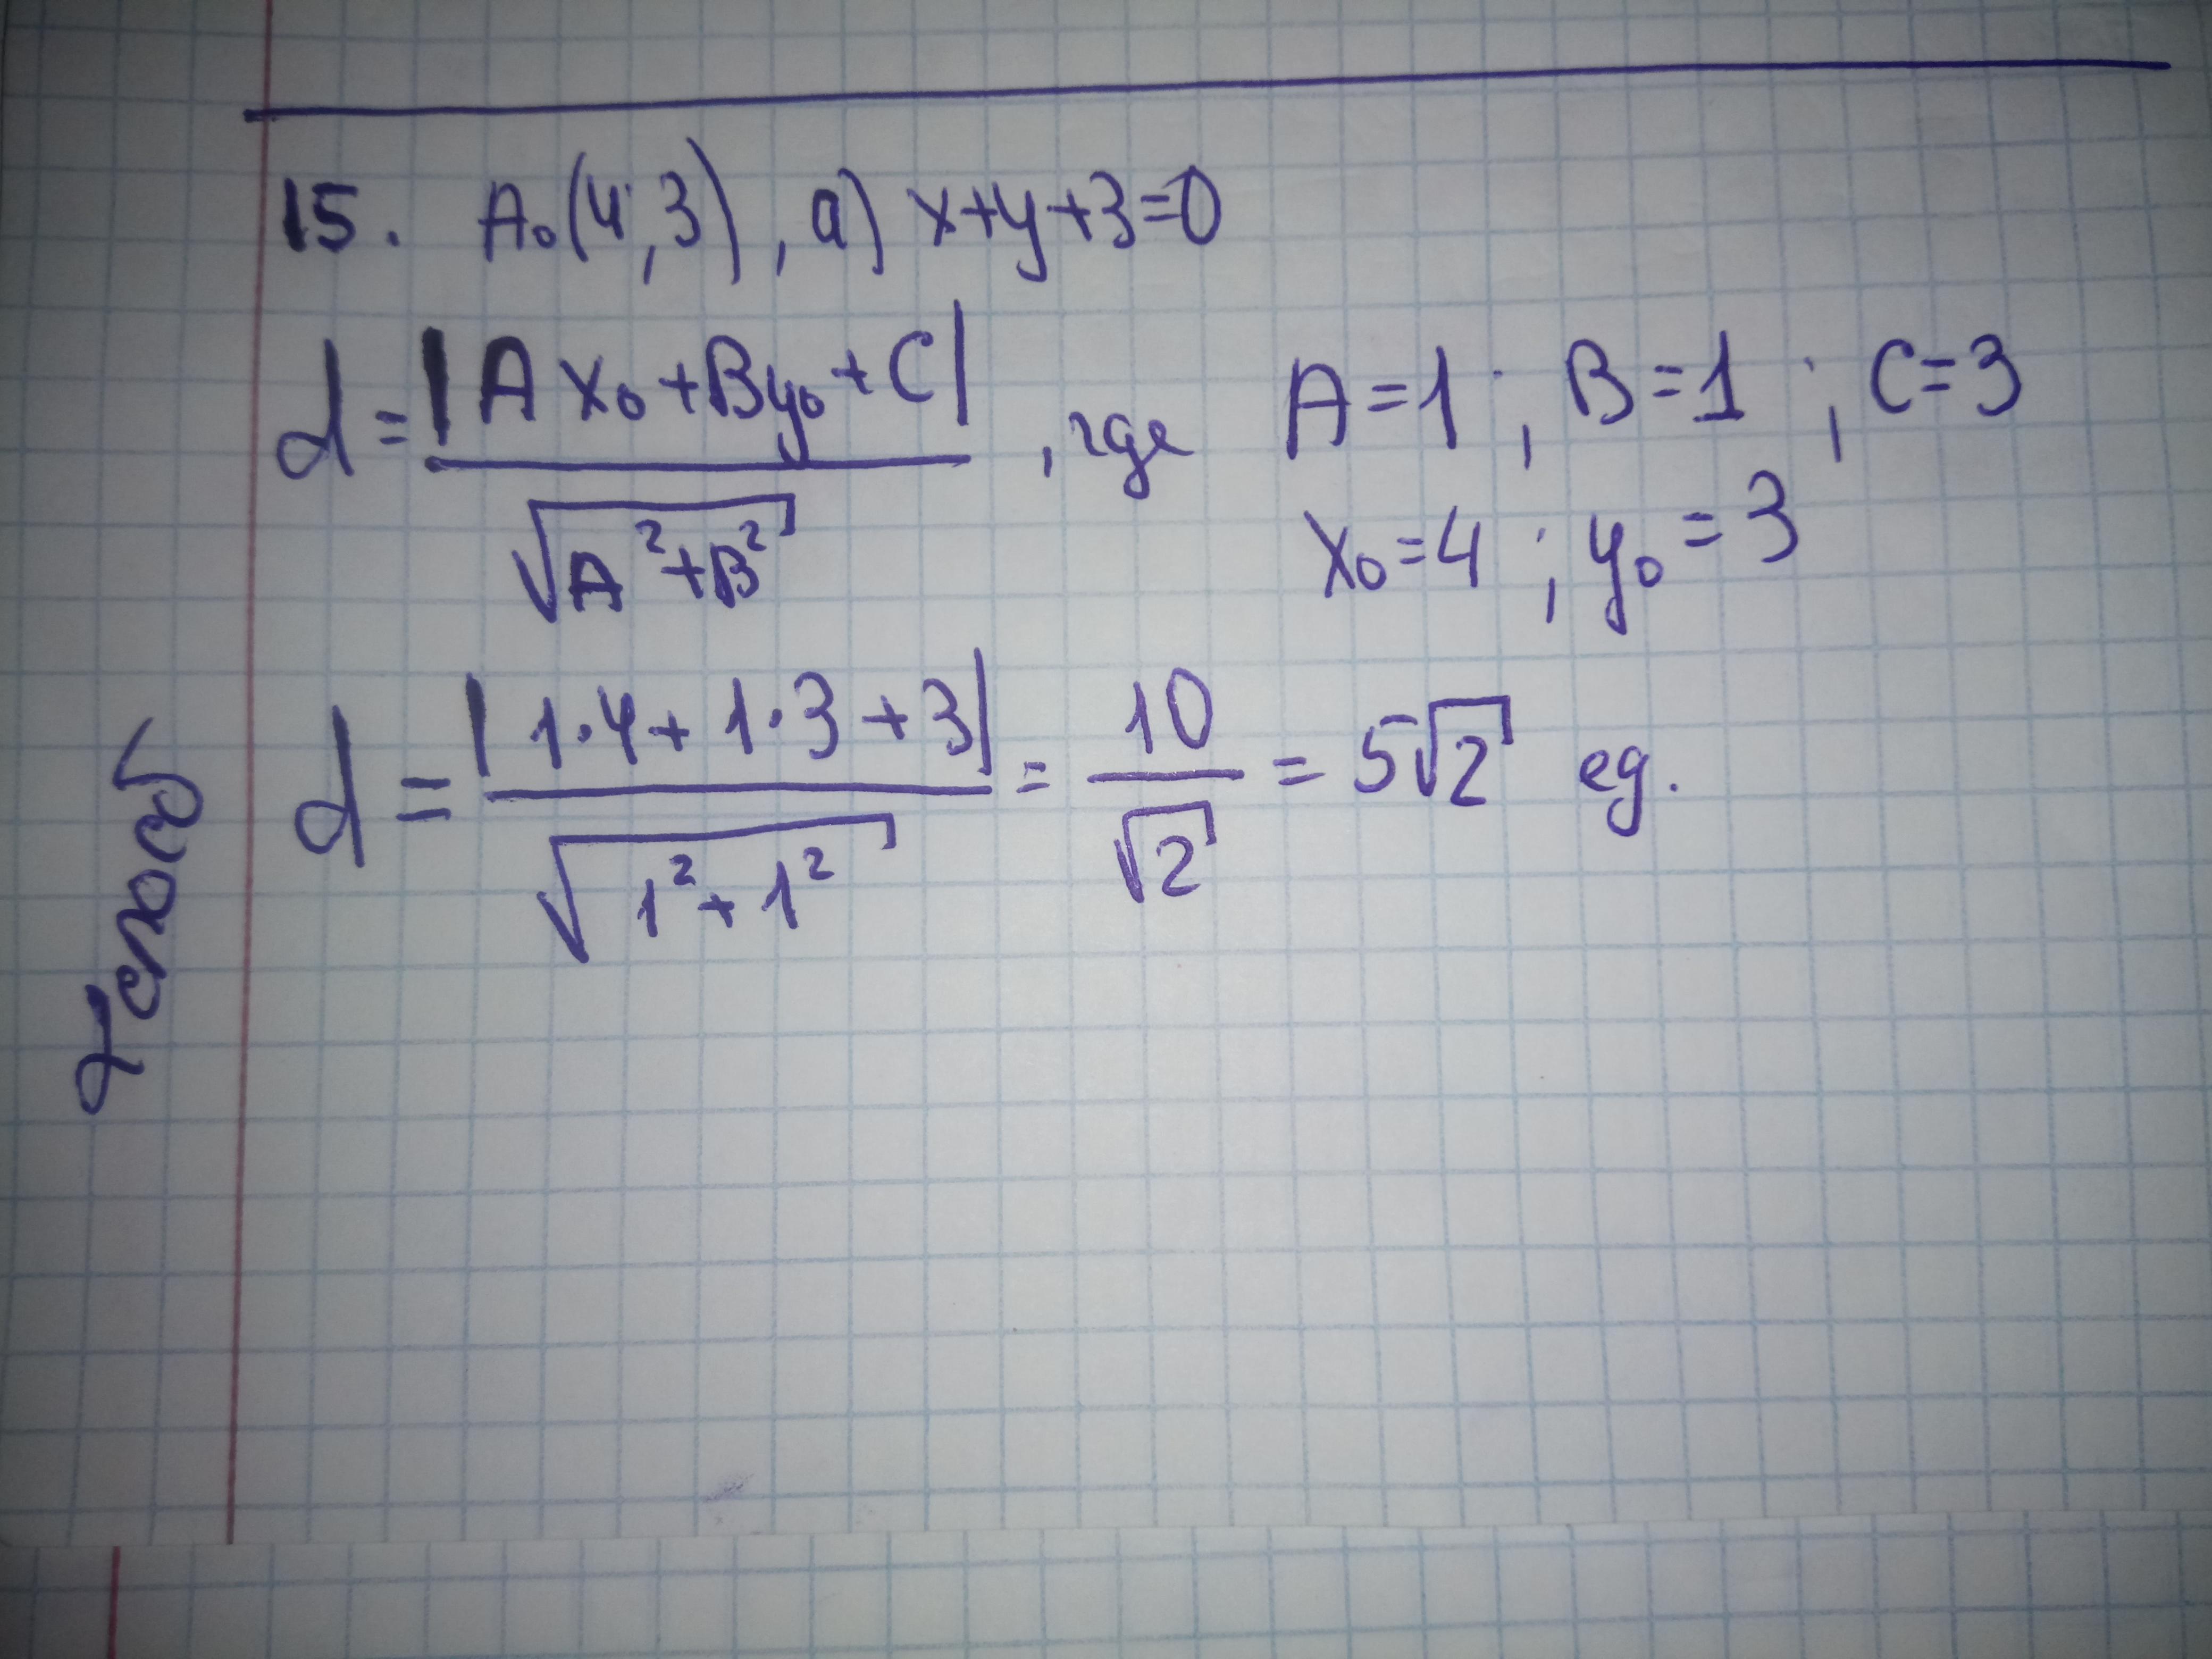 15. A₀(4;3), a) x+y+3=0
d = |Ax₀+By₀+C| / √(A²+B²), где A=1; B=1; C=3
x₀=4; y₀=3
d = |1·4+1·3+3| / √(1²+1²) = 10/√2 = 5√2 ед.